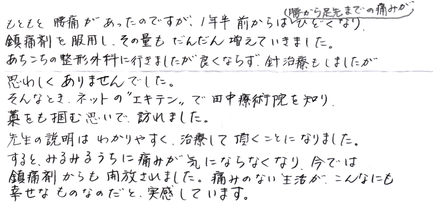 (腰から足先までの痛みが)
もともと 腰痛 が あったのですが、1年半 前からは ひどくなり、
鎮痛剤を服用し、その量も だんだん 増えていきました。
あちこちの整形外科に行きましたが良くならず、針治療もしましたが
思わしく ありませんでした。
そんなとき、ネットの“エキテン”で 田中療術院を知り、
藁をも掴む思いで、訪れました。
先生の説明は わかりやすく、治療して 頂くことになりました。
すると、みるみるうちに 痛みが 気にならなくなり、今では
鎮痛剤からも 開放されました。痛みのない生活が、こんなにも
幸せな ものなのだと、実感しています。